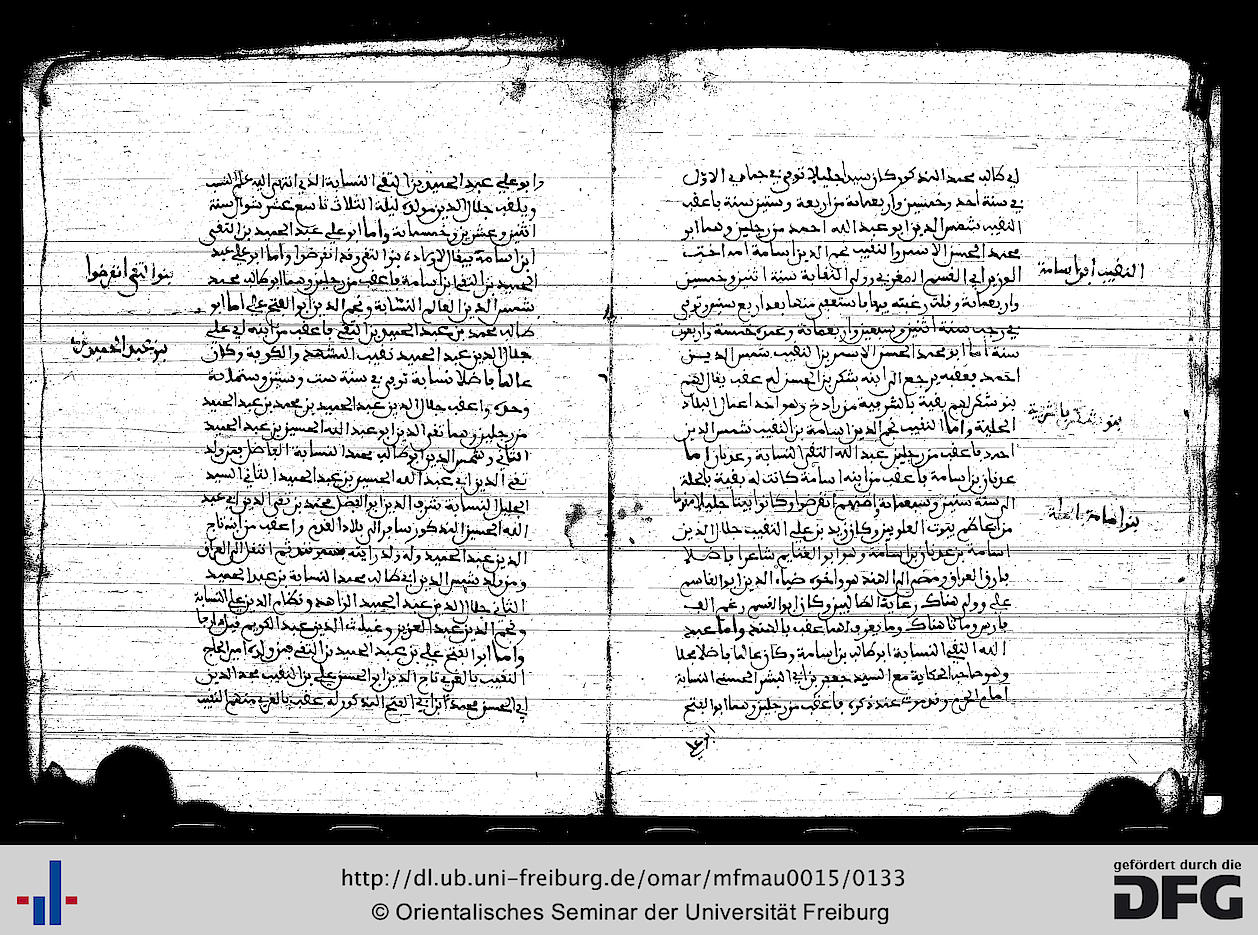 ابي طالب محمد المذكور كان سيدا جليلا توفي في جمادى الاولى
في سنة احد وخمسين واربعمائة من اربعة وستين سنة فاعقب
النقيب شمس الدين ابو عبد الله احمد من رجلين وهما ابو
محمد الحسن الاسمر والنقيب نجم الدين اسامة امه اخت
الوزير ابي القسم المغربي وولي النقابة سنة اثنين وخمسين
واربعمائة وقلت رغبته فيها فاستعفى منها بعد اربع سنين توفي
في رجب سنة اثنين وسبعين واربعمائة وعمره خمسة واربعون
سنة اما ابو محمد الحسن الاسمر بن النقيب شمس الدين
احمد فعقبه يرجع الى ابنه شكر بن الحسن له عقب يقال لهم
بنو شكر لهم بقية بالشرفية من رادخ وهو احد اعمال البلاد
الحلية واما النقيب نجم الدين اسامة بن النقيب شمس الدين
احمد فاعقب من رجلين عبد الله التقي النسابة وعدنان اما
عدنان بن اسامة فاعقب من ابنه اسامة كانت له بقية بالحلة
الى سنة ستين وسبعمائة اظنهم انقرضوا وكانوا بيتا جليلا مقدما
من اعاظم بيوت العلويين وكان زيد بن علي النقيب جلال الدين
اسامة بن عدنان بن اسامة وهو ابو الغنايم شاعرا فاضلا
فارق العراق ومضى الى الهند هو واخوه ضياء الدين ابو القاسم
علي وولي هناك زعاية الطالبيين وكان ابو القسم زعم الف
فارس وماتا هناك وما يعرف لهما عقب بالهند واما عبد
الله التقي النسابة ابو طالب بن اسامة وكان عالما فاضلا محلا
وهو صاحب الحكاية مع السيد جعفر بن ابي البشر الحسني النسابة
امام الحرم وقد مرت عند ذكره فاعقب من رجلين وهما ابو الفتح
ابو علي
النقيب ابن اسامة
بنو شكر بالشرفية
بنو اسامة بالحلة
وابو علي عبد الحميد بن التقي النسابة الذي انتهى اليه علم النسب
ويلقب جلال الدين مولده ليلة الثلاث تاسع عشر شوال سنة
اثنين وعشرين وخمسمائة واما ابو علي عبد الحميد بن التقي
ابن اسامة فيقال لاولاده بنو التقي وقد انقرضوا واما ابو علي عبد
الحميد بن التقي بن اسامة فاعقب من رجلين وهما ابو طالب محمد
شمس الدين العالم النسابة ونجم الدين ابو الفتح علي اما ابو
طالب محمد بن عبد الحميد بن التقي فاعقب من ابنه ابي علي
جلال الدين عبد الحميد نقيب المشهد والكوفة وكان
عالما فاضلا نسابة توفي في سنة ست وستين وستمائة
وحده واعقب جلال الدين عبد الحميد بن محمد بن عبد الحميد
من رجلين وهما تقي الدين ابو عبد الله الحسين بن عبد الحميد
الثاني وشمس الدين ابو طالب محمد النسابة الفاضل فمن ولد
تقي الدين ابي عبد الله الحسين بن عبد الحميد الثاني السيد
الجليل النسابة شرف الدين ابو الفضل محمد بن تقي الدين ابي عبد
الله الحسين المذكور سافر الى بلاد القرم واعقب من ابنه تاج
الدين عبد الحميد وله ولد رايته بسمرقند ثم انتقل الى العراق
ومن ولد شمس الدين ابي طالب محمد النسابة بن عبد الحميد
الثاني جلال الدين عبد الحميد الزاهد ونظام الدين علي النسابة
ونجم الدين عبد العزيز وغياث الدين عبد الكريم قتل دارجا
واما ابو الفتح علي بن عبد الحميد بن التقي فمن ولده امير الحاج
النقيب بالغري تاج الدين ابو الحسن علي بن النقيب مجد الدين
ابي الحسن محمد ابن ابي الفتح المذكور له عقب بالغري منهم النقيب
بنو التقي انقرضوا
بنو عبد الحميد
http://dl.ub.uni-freiburg.de/omar/mfmau0015/0133
© Orientalisches Seminar der Universität Freiburg
gefördert durch die
DFG